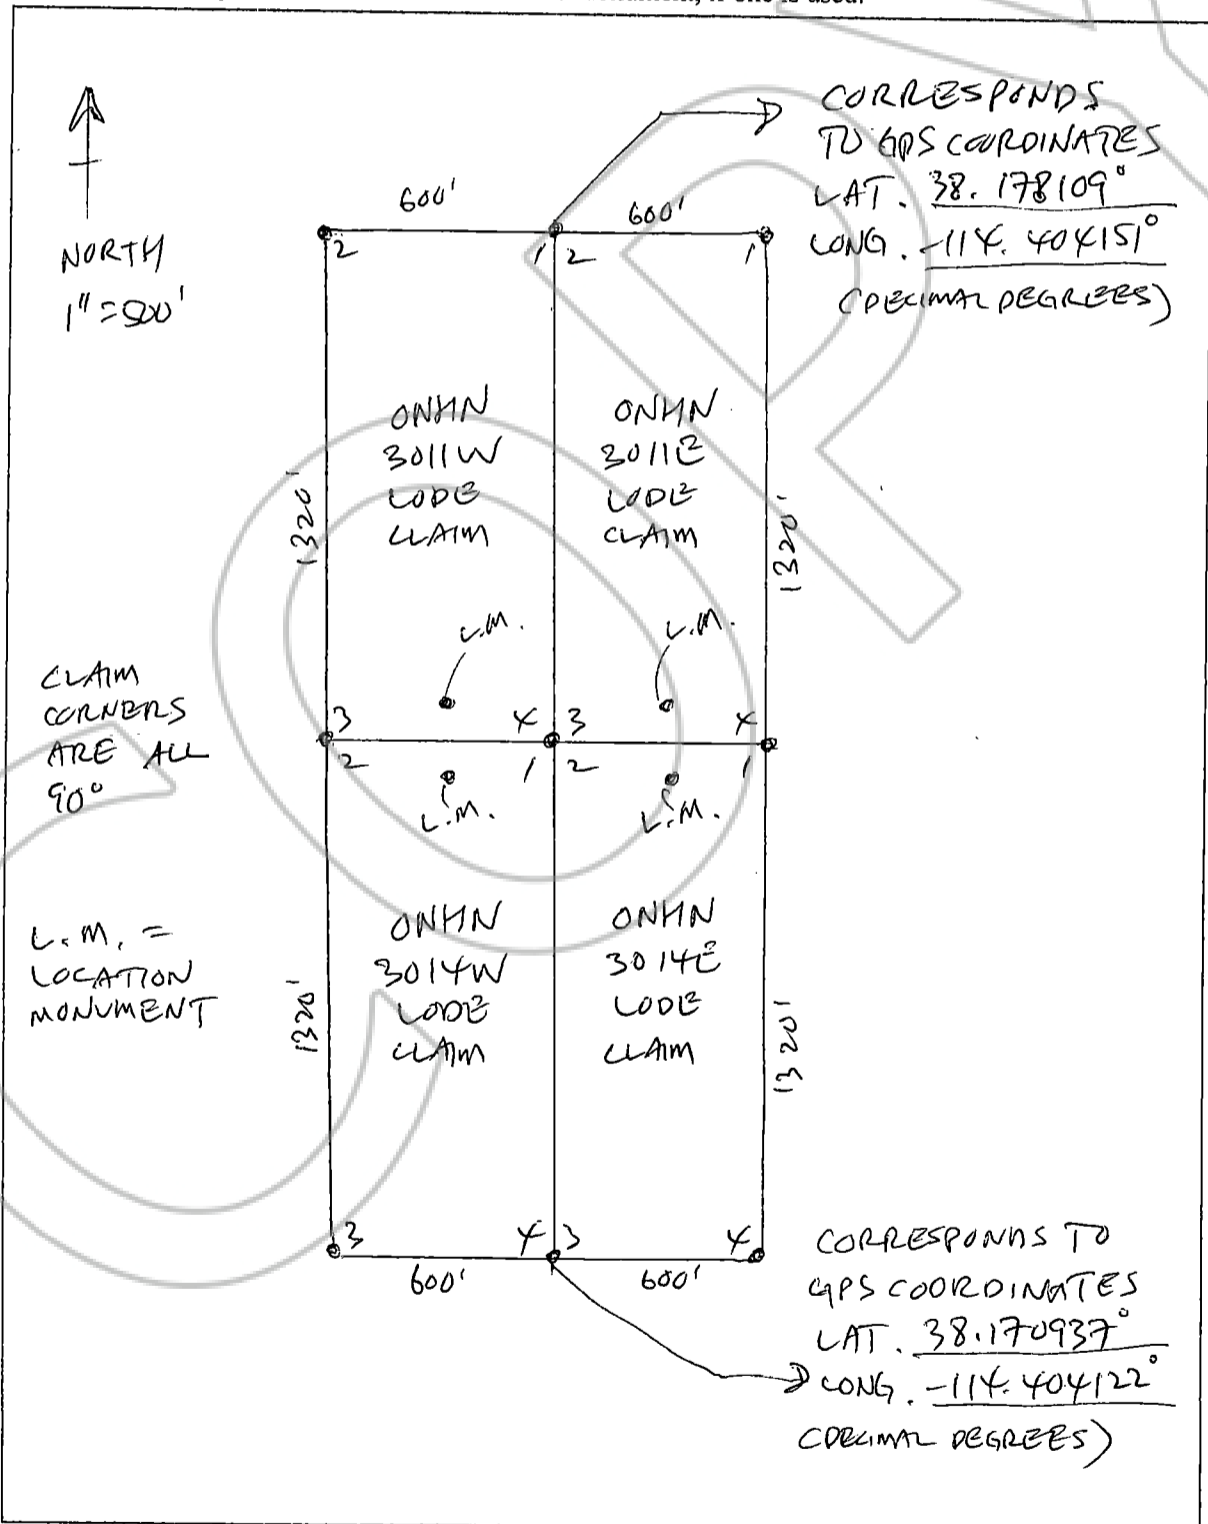 NORTH
1" = 500'
CORRESPONDS
TO GPS COORDINATES
LAT. 38.178109°
LONG. -114.404151°
(DECIMAL DEGREES)
600'
600'
2
1
2
1
ONHN
3011W
LODE
CLAIM
ONHN
3011E
LODE
CLAIM
1320'
1320'
L.M.
L.M.
CLAIM
CORNERS
ARE ALL
90°
3
4
3
4
2
1
2
1
L.M.
L.M.
L.M. =
LOCATION
MONUMENT
ONHN
3014W
LODE
CLAIM
ONHN
3014E
LODE
CLAIM
1320'
1320'
3
4
3
4
600'
600'
CORRESPONDS TO
GPS COORDINATES
LAT. 38.170937°
LONG. -114.404122°
(DECIMAL DEGREES)
COP